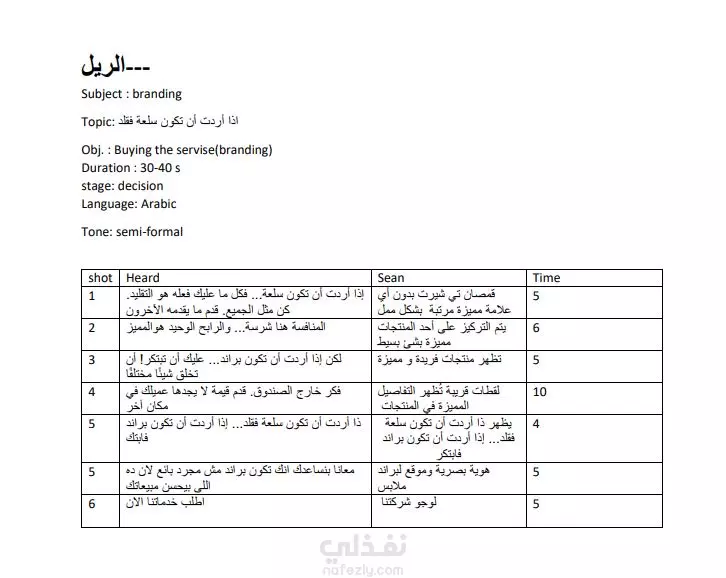 الريل---
Subject : branding
Topic: اذا أردت أن تكون سلعة فقلد
Obj. : Buying the servise(branding)
Duration : 30-40 s
stage: decision
Language: Arabic
Tone: semi-formal
shot Heard Sean Time
1 إذا أردت أن تكون سلعة... فكل ما عليك فعله هو التقليد. قمصان تي شيرت بدون أي 5
كن مثل الجميع. قدم ما يقدمه الآخرون علامة مميزة مرتبة بشكل ممل
2 المنافسة هنا شرسة... والرابح الوحيد هوالمميز يتم التركيز على أحد المنتجات 6
مميزة بشئ بسيط
3 لكن إذا أردت أن تكون براند... عليك أن تبتكر! أن تظهر منتجات فريدة و مميزة 5
تخلق شيئًا مختلفًا
4 فكر خارج الصندوق. قدم قيمة لا يجدها عميلك في لقطات قريبة تُظهر التفاصيل 10
مكان آخر المميزة في المنتجات
5 ذا أردت أن تكون سلعة فقلد... إذا أردت أن تكون براند يظهر ذا أردت أن تكون سلعة 4
فابتك فقلد... إذا أردت أن تكون براند
فابتكر
5 معانا بنساعدك انك تكون براند مش مجرد بائع لان ده هوية بصرية وموقع لبراند 5
اللى بيحسن مبيعاتك ملابس
6 اطلب خدماتنا الان لوجو شركتنا 5
نفذلي
nafezly.com